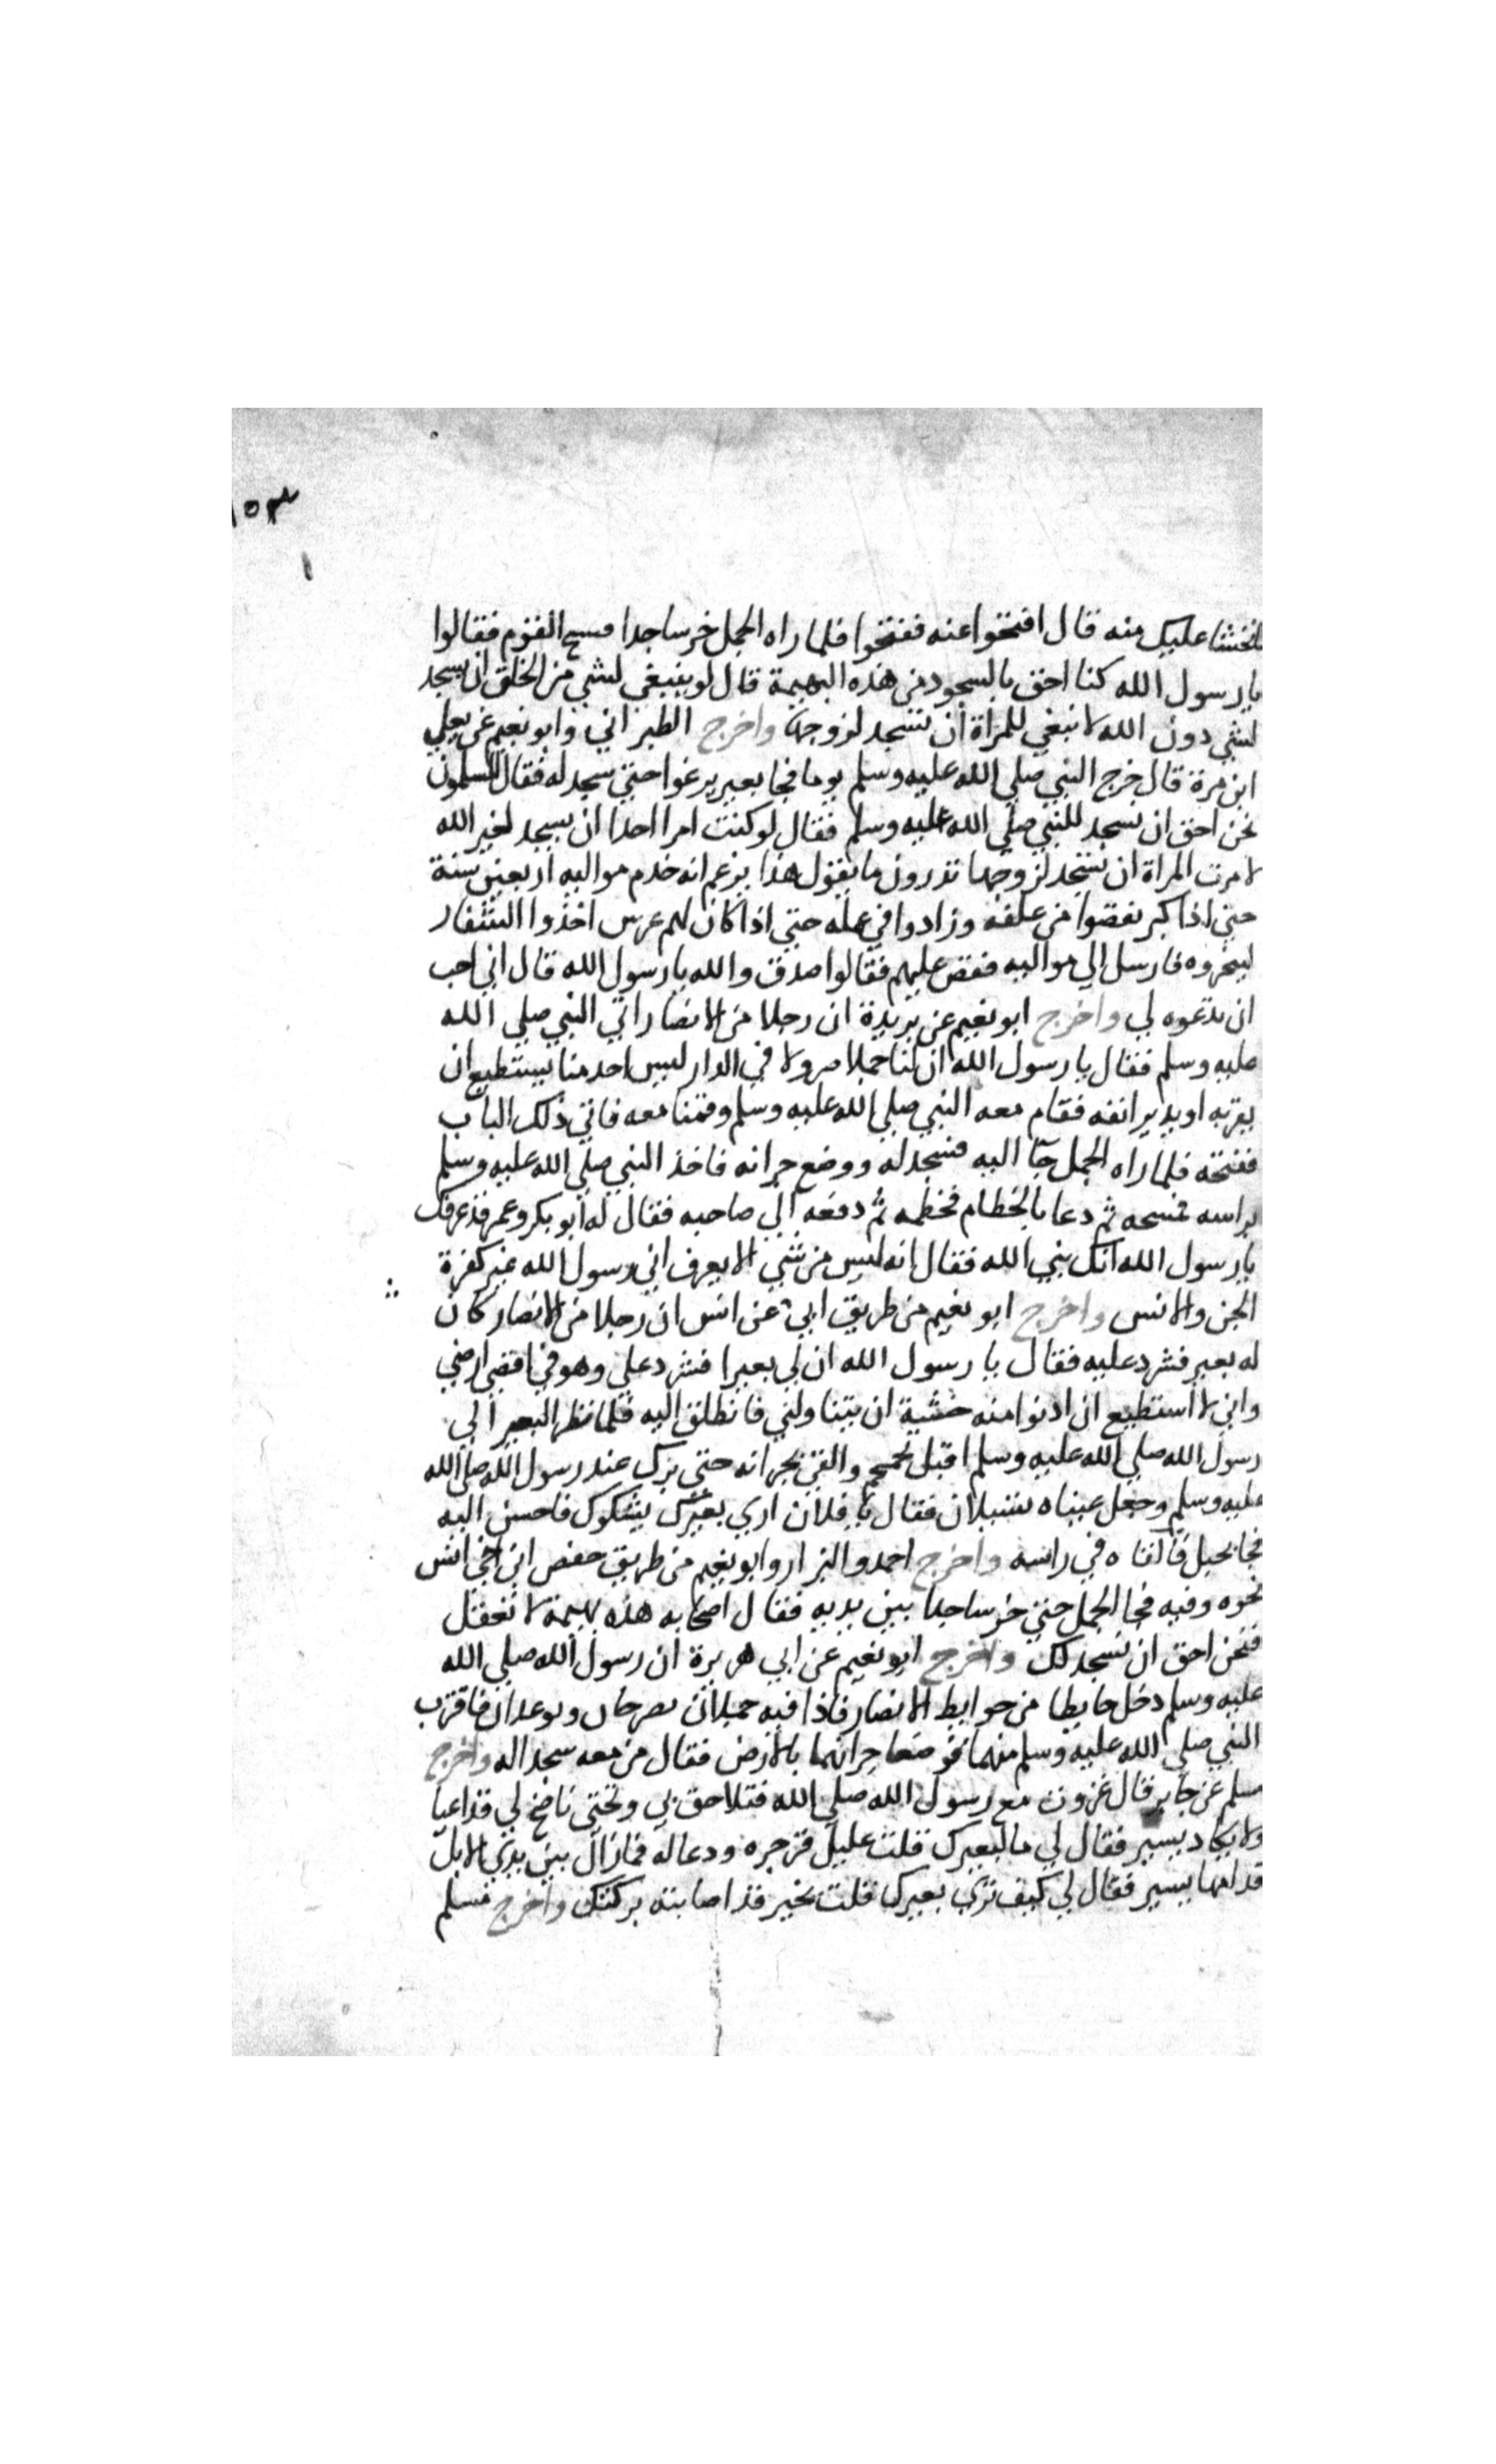 ١٥٣
فخشينا عليك منه قال افتحوا عنه ففتحوا فلما راه الجمل خر ساجدا فسبح القوم فقالوا
يا رسول الله كنا احق بالسجود من هذه البهيمة قال لو ينبغي لشي من الخلق ان يسجد
لشي دون الله لانبغي للمراة ان تسجد لزوجها واخرج الطبراني وابو نعيم عن يعلي
ابن مرة قال خرج النبي صلي الله عليه وسلم يوما فجا بعير يرغوا حتي سجد له فقال المسلمون
نحن احق ان نسجد للنبي صلي الله عليه وسلم فقال لو كنت امرا احدا ان يسجد لغير الله
لامرت المراة ان تسجد لزوجها تدرون ما يقول هذا يزعم انه خدم مواليه اربعين سنة
حتي اذا كبر نقصوا من علفه وزادوا في عمله حتي اذا كان لهم عرس اخذوا الشفار
لينحروه فارسل الي مواليه فقص عليهم فقالوا صدق والله يا رسول الله قال اني احب
ان تدعوه لي واخرج ابو نعيم عن بريدة ان رجلا من الانصار اتي النبي صلي الله
عليه وسلم فقال يا رسول الله ان لنا جملا صولا في الدار ليس احد منا يستطيع ان
يقربه او يدير انفه فقام معه النبي صلي الله عليه وسلم وقمنا معه فاتي ذلك الباب
ففتحه فلما راه الجمل جآ اليه فسجد له ووضع جرانه فاخذ النبي صلي الله عليه وسلم
براسه فمسحه ثم دعا بالخطام فخطمه ثم دفعه الي صاحبه فقال له ابو بكر وعمر قد عرفك
يا رسول الله انك نبي الله فقال انه ليس من شي الا يعرف اني رسول الله غير كفرة
الجن والانس واخرج ابو نعيم من طريق ابي عن انس ان رجلا من الانصار كان
له بعير فشرد عليه فقال يا رسول الله ان لي بعيرا فشرد علي وهو في اقصي ارضي
واني لا استطيع ان ادنوا منه خشية ان يتناولني فانطلق اليه فلما نظر البعير الي
رسول الله صلي الله عليه وسلم اقبل يحمحم والقي بجرانه حتي برك عند رسول الله صلي الله
عليه وسلم وجعل عيناه تسيلان فقال يا فلان اري بعيرك يشكوك فاحسن اليه
فجا بحبل فالقاه في راسه واخرج احمد والبزار وابو نعيم من طريق حفص ابن اخي انس
نحوه وفيه فجا الجمل حتي خر ساجدا بين يديه فقال اصحابه هذه بهيمة لا تعقل
فنحن احق ان نسجد لك واخرج ابو نعيم عن ابي هريرة ان رسول الله صلي الله
عليه وسلم دخل حايطا من حوايط الانصار فاذا فيه جملان يصرخان ويوعدان فاقترب
النبي صلي الله عليه وسلم منهما فوضعا جرانهما بالارض فقال من معه سجدا له واخرج
مسلم عن جابر قال غزوت مع رسول الله صلي الله فتلاحق بي وتحتي ناضح لي قد اعيا
ولا يكاد يسير فقال لي ما لبعيرك قلت عليل فزجره ودعا له فما زال بين يدي الابل
قدامها يسير فقال لي كيف تري بعيرك قلت بخير قد اصابته بركتك واخرج مسلم